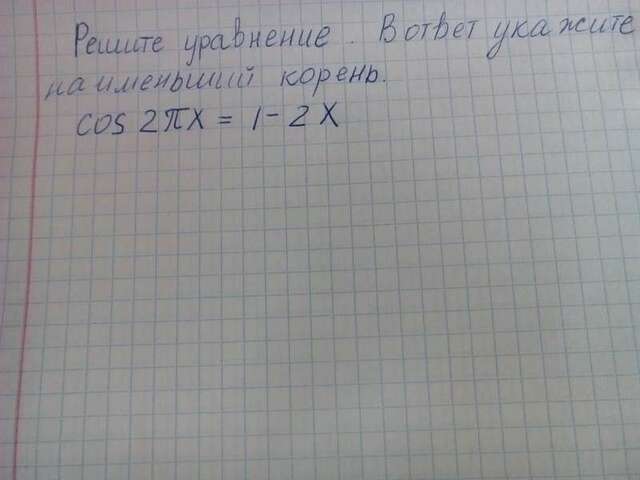 Решите уравнение. В ответ укажите
наименьший корень.
cos 2πx = 1 - 2x